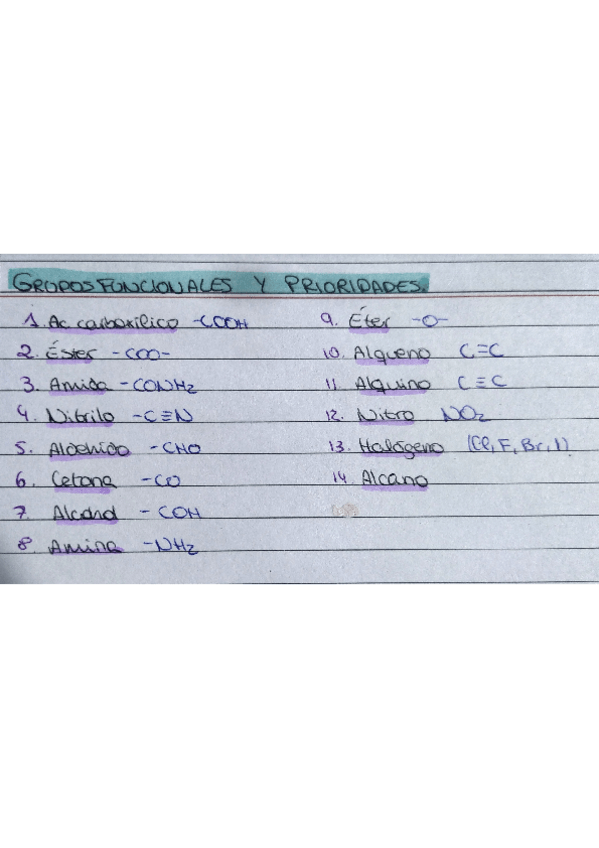 GRUPOS FUNCIONALES Y PRIORIDADES.
1. Ac. carboxílico -COOH
2. Éster -COO-
3. Amida -CONH2
4. Nitrilo -C≡N
5. Aldehido -CHO
6. Cetona -CO
7. Alcohol - COH
8. Amina -NH2
9. Éter -O-
10. Alqueno C=C
11. Alquino C≡C
12. Nitro NO2
13. Halógeno (Cl, F, Br, I)
14. Alcano